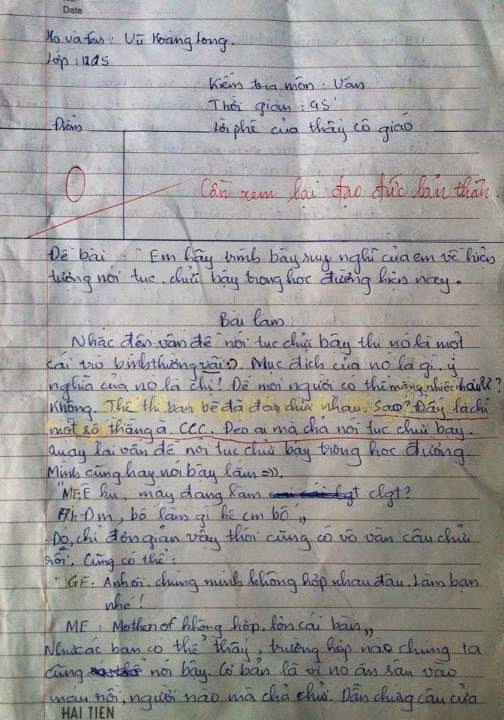 No.
Date
Họ và tên : Vũ Hoàng Long.
Lớp : 12A5
Kiểm tra môn : Văn
Thời gian : 45'
Điểm
Lời phê của thầy cô giáo
0
Cần xem lại đạo đức bản thân.
Đề bài : " Em hãy trình bày suy nghĩ của em về hiện
tượng nói tục, chửi bậy trong học đường hiện nay.
Bài làm:
Nhắc đến vấn đề nói tục chửi bậy thì nó là một
cái trò bình thường vãi :). Mục đích của nó là gì, ý
nghĩa của nó là chi! Để mọi người có thể mắng nhiếc nhau ư?
Không. Thế thì bạn bè đã đéo chửi nhau. Sao? Đấy là chỉ
một số thằng à. CCC. Đéo ai mà chả nói tục chửi bậy.
Quay lại vấn đề nói tục chửi bậy trong học đường.
Mình cũng hay nói bậy lắm =)).
"ME: Ê ku, mày đang làm clgt?
FRI: Đm, bố làm gì kệ cm bố "
Đó, chỉ đơn giản vậy thôi cũng có vô vàn câu chửi
rồi. Cũng có thể :
"GF: Anh ơi, chúng mình không hợp nhau đâu. Làm bạn
nhé!
ME : Mother of không hợp, lồn cái bạn "
Như các bạn có thể thấy, trường hợp nào chúng ta
cũng nói bậy. Cơ bản là vì nó ăn sâu vào
máu rồi, người nào mà chả chửi. Dẫn chứng câu cửa
HAI TIEN